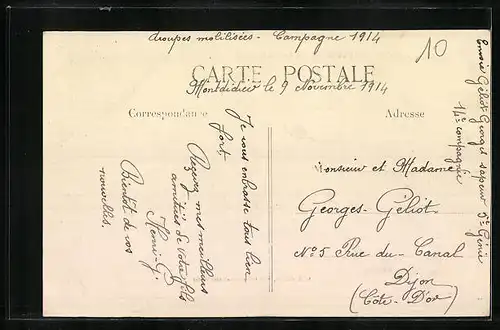 troupes mobilisées - Campagne 1914
10
CARTE POSTALE
Montdidier le 9 Novembre 1914
Correspondance
Adresse
Je vous embrasse tous bien
fort.
Recevez mes meilleures
amitiés de votre fils
Henri-G
Bientôt de vos
nouvelles.
Monsieur et Madame
Georges-Géliot.
N°5 Rue du-Canal
Dijon
(Côte-D'or)
Envoi Géliot Georges sapeur 5e Génie
14e compagnie